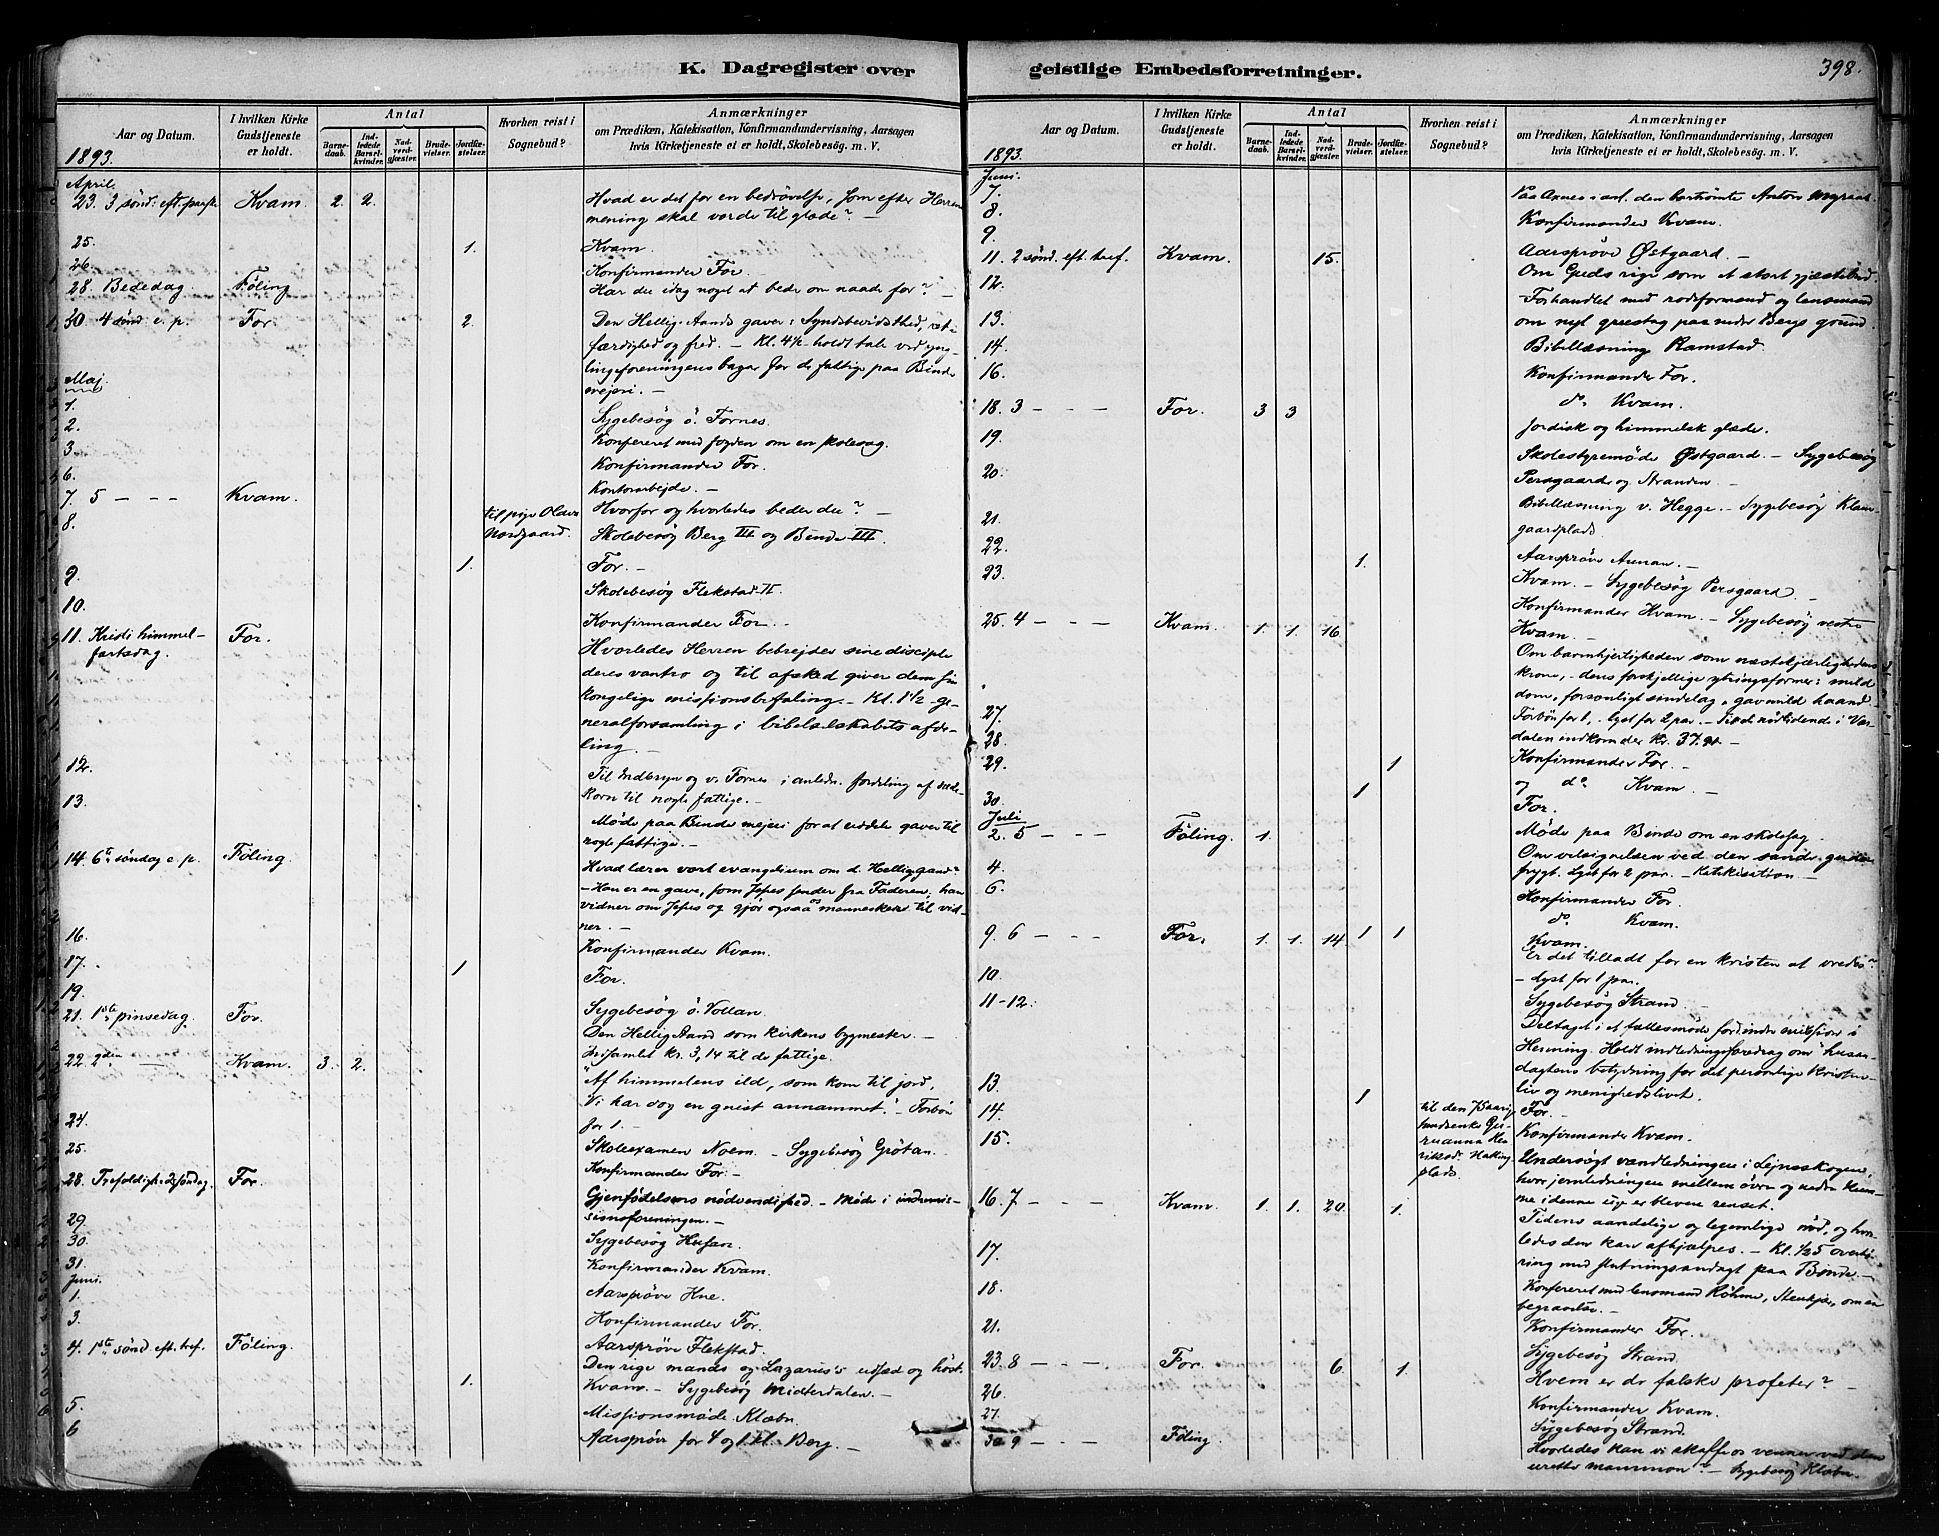 K. Dagregister over geistlige Embedsforretninger.
398.
Aar og Datum.
I hvilken Kirke Gudstjeneste er holdt.
Antal
Barnedaab.
Indledede Barselkvinder.
Nadverdgjæster.
Brudevielser.
Jordfæstelser.
Hvorhen reist i Sognebud?
Anmærkninger
om Prædiken, Katekisation, Konfirmandundervisning, Aarsagen
hvis Kirketjeneste ei er holdt, Skolebesøg. m. V.
1893.
April.
23. 3 sønd. eft. paaske Kvam. 2. 2. Hvad er det for en bedrøvelse, som efter Herrens
mening skal vorde til glæde? —
25. 1. Kvam.
26. Konfirmander For.
28 Bededag Føling Har du idag noget at bede om naade for? —
30 4 sønd. e. p. For. 2. Den Hellig-Aands gaver: Syndsbevidsthed, ret-
færdighed og fred. — Kl. 4½ holdt tale ved yng-
lingeforeningens bazar for de fattige paa Binde
mejeri. —
Maj.
1. Sygebesøg ö. Fornes.
2. Konfereret med fogden om en skolesag.
3. Konfirmander For.
6. Kontorarbejde. —
7. 5 — - - Kvam. Hvorfor og hvorledes beder du? —
8. til pige Nordgaard. Skolebesøg Berg III og Binde III.
1. For. —
9. Skolebesøg Flekstad II.
10. Konfirmander For. —
11. Kristi himmel-
fartsdag. For. Hvorledes Herren bebrejder sine disciple
deres vantro og til afsked giver dem sin
kongelige missionsbefaling. — Kl. 1½ ge-
neralforsamling i bibelselskabets afde-
ling. —
12. Til Indbryn og v. Fornes i anledn. fordeling af sæde-
korn til nogle fattige. —
13. Møde paa Binde mejeri for at uddele gaver til
nogle fattige. —
14. 6te søndag e. p. Føling. Hvad lærer vort evangelium om d. Helligaand?
— Han er en gave, som Jesus sender fra Faderen, han
vidner om Jesus og gjør ogsaa os mennesker til vid-
ner. —
16. Konfirmander Kvam.
17. 1 For.
19. Sygebesøg ö. Vollan.
21. 1ste pinsedag. For. Den Hellig Aand som kirkens bygmester. —
Indsamlet kr. 3,14 til de fattige.
22. 2den — Kvam. 3. 2. "Af himmelens ild, som kom til jord,
Vi har dog en gnist annammet." — Forbøn
for 1. —
24. Skoleexamen Noem. — Sygebesøg Grötan. —
25. Konfirmander For. —
28. Trefoldighedssøndag. For. Gjenfødelsens nødvendighed. — Møde i indremis-
sionsforeningen. —
29. Sygebesøg Husan.
30.
31. Konfirmander Kvam.
Juni.
1. Aarsprøve Hne.
3. Konfirmander For.
4. 1ste sønd. eft. tref. Føling. Aarsprøve Flekstad.
Den rige mands og Lazarus's udsæd og høst.
1. Kvam. — Sygebesøg Midterdalen. —
5. Missionsmøde Klæbu.
6 Aarsprøve for 4 og 1 kl. Berg. —
Aar og Datum.
I hvilken Kirke Gudstjeneste er holdt.
Antal
Barnedaab.
Indledede Barselkvinder.
Nadverdgjæster.
Brudevielser.
Jordfæstelser.
Hvorhen reist i Sognebud?
Anmærkninger
om Prædiken, Katekisation, Konfirmandundervisning, Aarsagen
hvis Kirketjeneste ei er holdt, Skolebesøg. m. V.
1893.
Juni.
7. Paa Axnes i anl. den bortrømte Anton
8. Konfirmander Kvam.
9. Aarsprøve Østgaard. —
11. 2 sønd. eft. tref. Kvam. 15. Om Guds rige som et stort gjæstebud.
12. Forhandlet med rodeformand og lensmand
om nyt grustag paa nedre Bergs grund.
13. Bibellæsning Ramstad.
14. Konfirmander For.
16. do Kvam.
18. 3 — - — For. 3 3 Jordisk og himmelsk glæde.
19. Skolestyremøde Østgaard. — Sygebesøg
Persgaard og Stranden —
20. Bibellæsning v. Hegge. — Sygebesøg
21. Aarsprøve
22. 1. Kvam. — Sygebesøg Persgaard. —
23. Konfirmander Kvam. — Sygebesøg vestre
Kvam. —
25. 4 — - — Kvam. 1. 1. 16. Om barmhjertigheden som næstekjærlighedens
krone, - dens forskjellige ytringsformer: mild
dom, forsonligt sindelag, gavmild haand.
Forbøn for 1, - Lyst for 2 par. — Til de nødlidende i Vær-
dalen indkom der kr. 37.91 —
27. Konfirmander For. —
28. og do Kvam. —
29. 1 For. —
30. 1 Møde paa Binde om en skolesag. —
Juli
2. 5 — - — Føling. 1. Om velsignelsen ved den sande guds-
frygt. Lyst for 2 par. — Katekisation —
4. Konfirmander For.
6. do Kvam.
Kvam.
9. 6 — - — For. 1. 1. 14. 1 1 Er det tilladt for en kristen at vredes?
— Lyst for 1 par. —
10 Sygebesøg Strand. —
11-12. Deltaget i et fællesmøde for indre mission i
Henning. Holdt indledningsforedrag om "husan-
dagtens betydning for det personlige kristen-
liv og menighedslivet.
13. 1 For. —
14. til den Konfirmander Kvam.
15. Undersøgt vandledningen i Lejnsskogen,
hvor jernledningen mellem øvre og nedre kum-
me i denne uge er bleven renset.
16. 7 — - — Kvam. 1. 1. 20. 1. Tidens aandelige og legemlige nød, og hvor-
ledes den kan afhjælpes. — Kl. ½5
med slutningsandagt paa Binde. —
17. Konfereret med lensmand Röhme, Stenkjær, om en
begravelse. —
18. Konfirmander For.
21. Sygebesøg Strand.
23. 8 — - — For. 6. 1. Hvem er de falske profeter? —
26. Konfirmander Kvam.
27. Sygebesøg Strand.
30 9 — - — Føling Hvorledes kan vi skaffe os venner ved den
urette mammon? — Sygebesøg Klæbu.